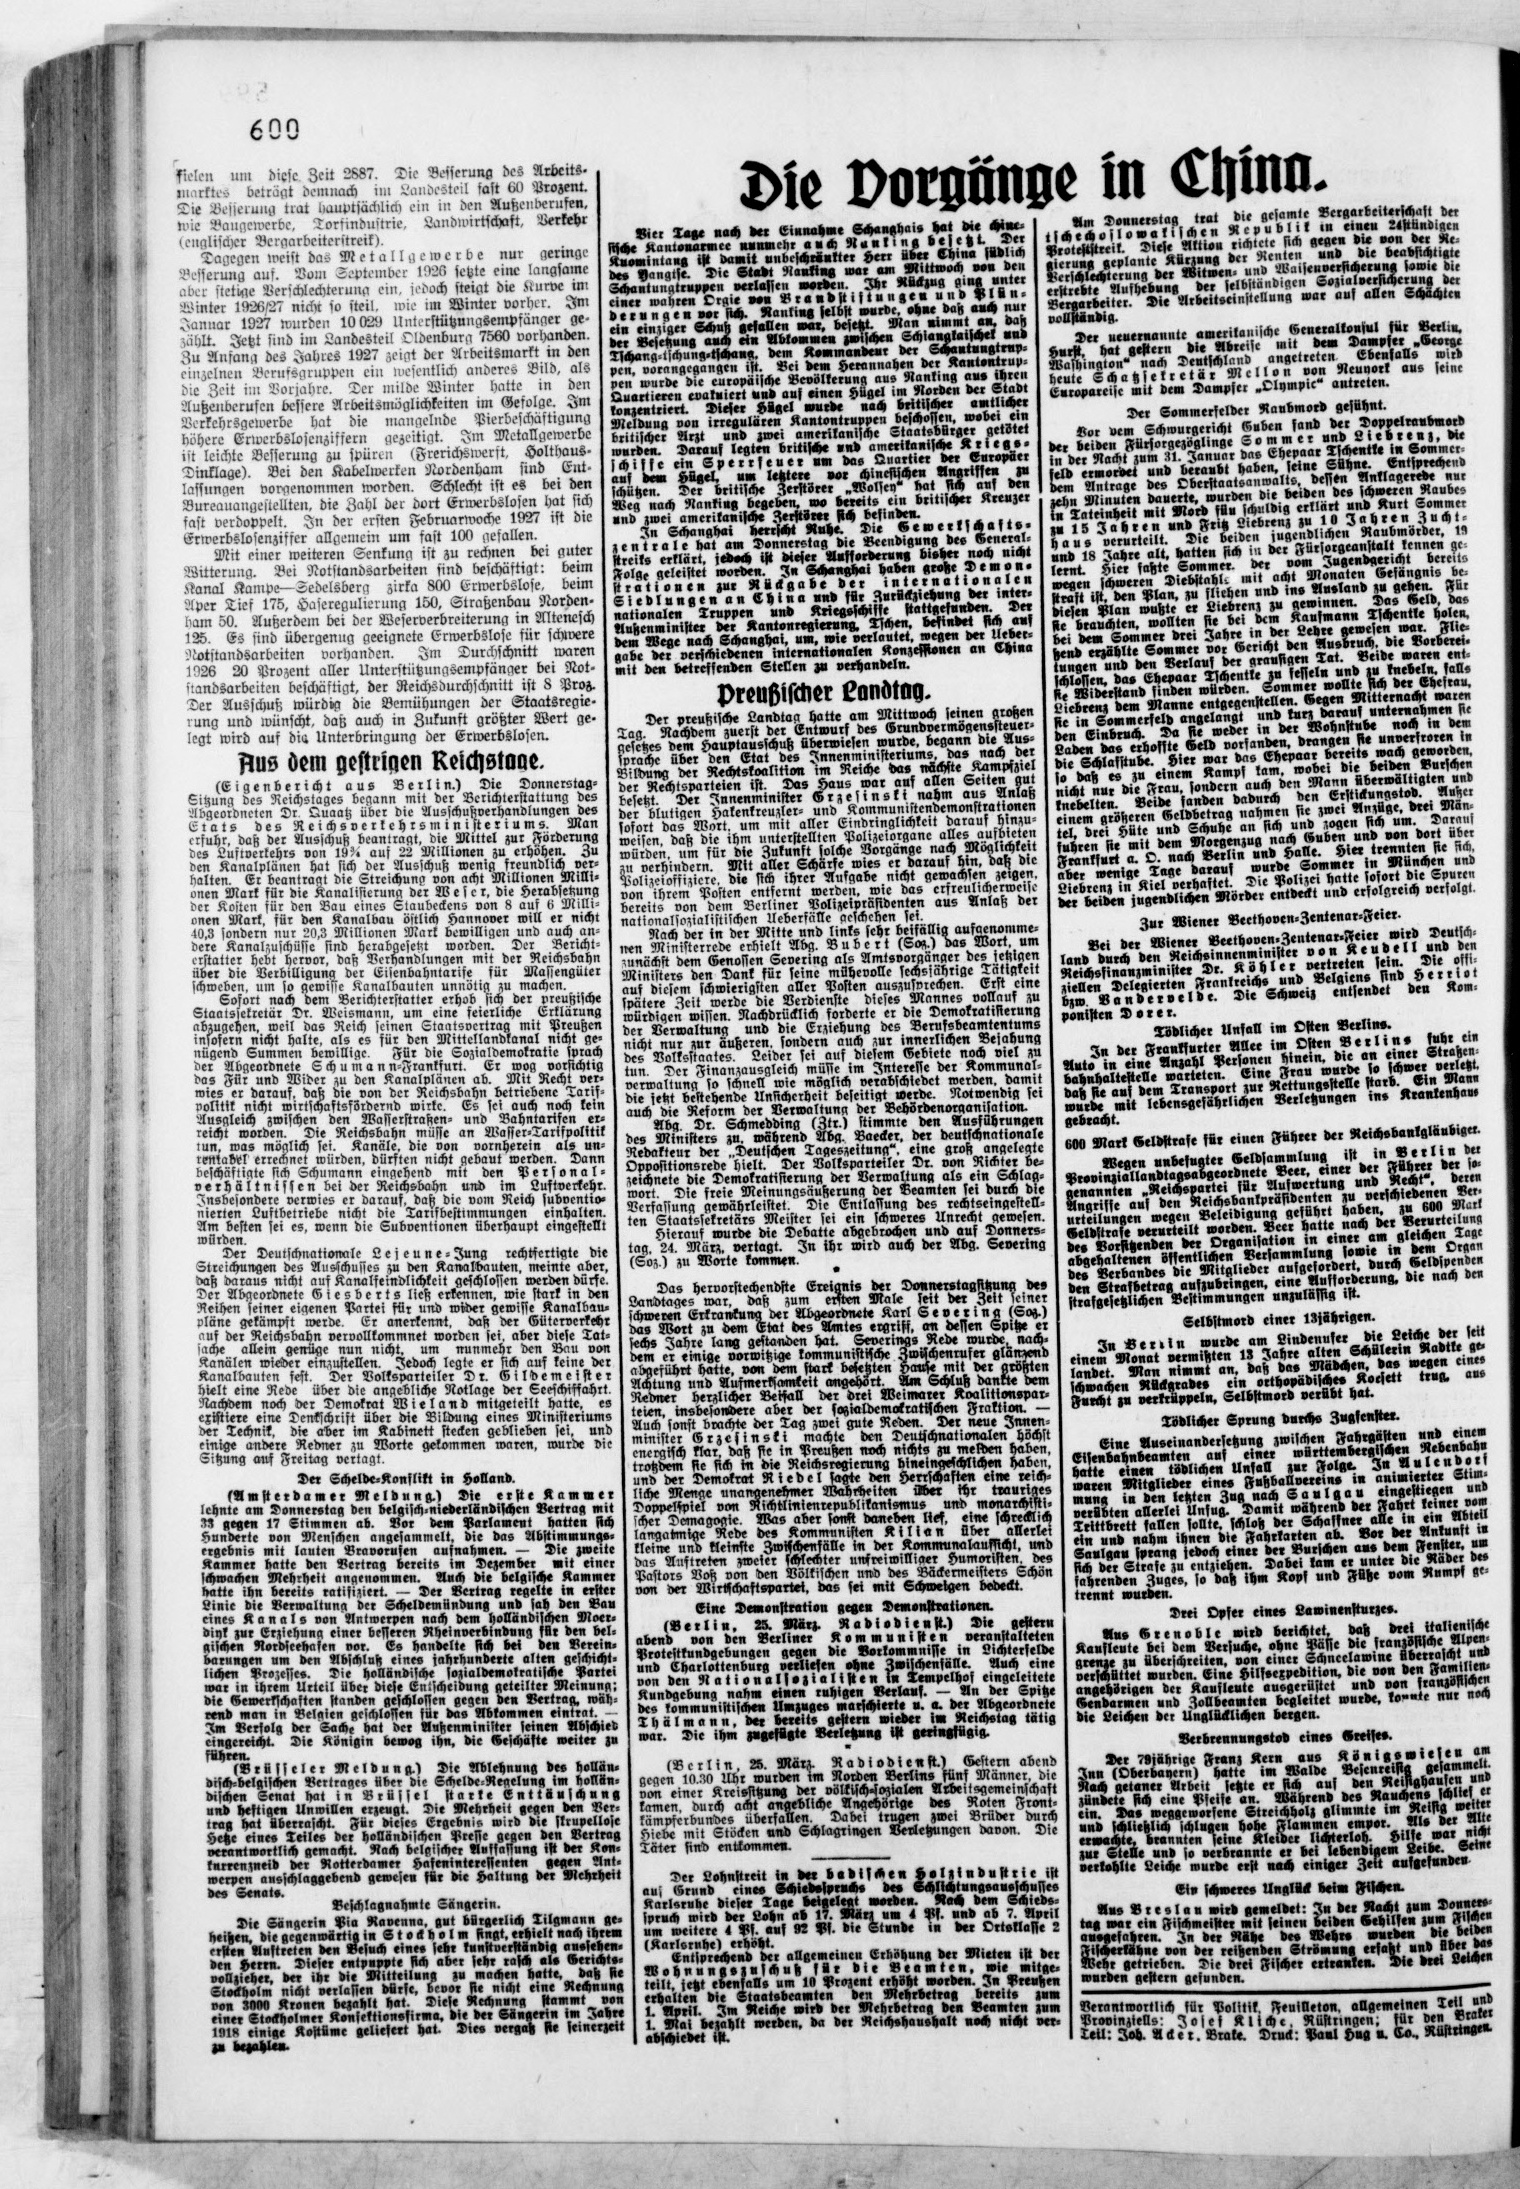 600
fielen um diese Zeit 2887. Die Besserung des Arbeits-
marktes beträgt demnach im Landesteil fast 60 Prozent.
Die Besserung trat hauptsächlich ein in den Außenberufen,
wie Baugewerbe, Torfindustrie, Landwirtschaft, Verkehr
(englischer Bergarbeiterstreik).
Dagegen weist das Metallgewerbe nur geringe
Besserung auf. Vom September 1926 setzte eine langsame
aber stetige Verschlechterung ein, jedoch steigt die Kurve im
Winter 1926/27 nicht so steil, wie im Winter vorher. Im
Januar 1927 wurden 10 029 Unterstützungsempfänger ge-
zählt. Jetzt sind im Landesteil Oldenburg 7560 vorhanden.
Zu Anfang des Jahres 1927 zeigt der Arbeitsmarkt in den
einzelnen Berufsgruppen ein wesentlich anderes Bild, als
die Zeit im Vorjahre. Der milde Winter hatte in den
Außenberufen bessere Arbeitsmöglichkeiten im Gefolge. Im
Verkehrsgewerbe hat die mangelnde Pierbeschäftigung
höhere Erwerbslosenziffern gezeitigt. Im Metallgewerbe
ist leichte Besserung zu spüren (Frerichswerft, Holthaus-
Dinklage). Bei den Kabelwerken Nordenham sind Ent-
lassungen vorgenommen worden. Schlecht ist es bei den
Bureauangestellten, die Zahl der dort Erwerbslosen hat sich
fast verdoppelt. In der ersten Februarwoche 1927 ist die
Erwerbslosenziffer allgemein um fast 100 gefallen.
Mit einer weiteren Senkung ist zu rechnen bei guter
Witterung. Bei Notstandsarbeiten sind beschäftigt: beim
Kanal Kampe—Sedelsberg zirka 800 Erwerbslose, beim
Aper Tief 175, Haseregulierung 150, Straßenbau Norden-
ham 50. Außerdem bei der Weserverbreiterung in Altenesch
125. Es sind übergenug geeignete Erwerbslose für schwere
Notstandsarbeiten vorhanden. Im Durchschnitt waren
1926 20 Prozent aller Unterstützungsempfänger bei Not-
standsarbeiten beschäftigt, der Reichsdurchschnitt ist 8 Proz.
Der Ausschuß würdig die Bemühungen der Staatsregie-
rung und wünscht, daß auch in Zukunft größter Wert ge-
legt wird auf die Unterbringung der Erwerbslosen.
Aus dem gestrigen Reichstage.
(Eigenbericht aus Berlin.) Die Donnerstag-
Sitzung des Reichstages begann mit der Berichterstattung des
Abgeordneten Dr. Quaatz über die Ausschußverhandlungen des
Etats des Reichsverkehrsministeriums. Man
erfuhr, daß der Ausschuß beantragt, die Mittel zur Förderung
des Luftverkehrs von 19¾ auf 22 Millionen zu erhöhen. Zu
den Kanalplänen hat sich der Ausschuß wenig freundlich ver-
halten. Er beantragt die Streichung von acht Millionen Milli-
onen Mark für die Kanalisierung der Weser, die Herabsetzung
der Kosten für den Bau eines Staubeckens von 8 auf 6 Milli-
onen Mark, für den Kanalbau östlich Hannover will er nicht
40,3 sondern nur 20,3 Millionen Mark bewilligen und auch an-
dere Kanalzuschüsse sind herabgesetzt worden. Der Bericht-
erstatter hebt hervor, daß Verhandlungen mit der Reichsbahn
über die Verbilligung der Eisenbahntarife für Massengüter
schweben, um so gewisse Kanalbauten unnötig zu machen.
Sofort nach dem Berichterstatter erhob sich der preußische
Staatssekretär Dr. Weismann, um eine feierliche Erklärung
abzugehen, weil das Reich seinen Staatsvertrag mit Preußen
insofern nicht halte, als es für den Mittellandkanal nicht ge-
nügend Summen bewillige. Für die Sozialdemokratie sprach
der Abgeordnete Schumann-Frankfurt. Er wog vorsichtig
das Für und Wider zu den Kanalplänen ab. Mit Recht ver-
wies er darauf, daß die von der Reichsbahn betriebene Tarif-
politik nicht wirtschaftsfördernd wirke. Es sei auch noch kein
Ausgleich zwischen den Wasserstraßen- und Bahntarifen er-
reicht worden. Die Reichsbahn müsse an Wasser-Tarifpolitik
tun, was möglich sei. Kanäle, die von vornherein als un-
rentabel errechnet würden, dürften nicht gebaut werden. Dann
beschäftigte sich Schumann eingehend mit den Personal-
verhältnissen bei der Reichsbahn und im Luftverkehr.
Insbesondere verwies er darauf, daß die vom Reich subventio-
nierten Luftbetriebe nicht die Tarifbestimmungen einhalten.
Am besten sei es, wenn die Subventionen überhaupt eingestellt
würden.
Der Deutschnationale Lejeune-Jung rechtfertigte die
Streichungen des Ausschusses zu den Kanalbauten, meinte aber,
daß daraus nicht auf Kanalfeindlichkeit geschlossen werden dürfe.
Der Abgeordnete Giesberts ließ erkennen, wie stark in den
Reihen seiner eigenen Partei für und wider gewisse Kanalbau-
pläne gekämpft werde. Er anerkennt, daß der Güterverkehr
auf der Reichsbahn vervollkommnet worden sei, aber diese Tat-
sache allein genüge nun nicht, um nunmehr den Bau von
Kanälen wieder einzustellen. Jedoch legte er sich auf keine der
Kanalbauten fest. Der Volksparteiler Dr. Gildemeister
hielt eine Rede über die angebliche Notlage der Seeschiffahrt.
Nachdem noch der Demokrat Wieland mitgeteilt hatte, es
existiere eine Denkschrift über die Bildung eines Ministeriums
der Technik, die aber im Kabinett stecken geblieben sei, und
einige andere Redner zu Worte gekommen waren, wurde die
Sitzung auf Freitag vertagt.
Der Schelde-Konflikt in Holland.
(Amsterdamer Meldung.) Die erste Kammer
lehnte am Donnerstag den belgisch-niederländischen Vertrag mit
33 gegen 17 Stimmen ab. Vor dem Parlament hatten sich
Hunderte von Menschen angesammelt, die das Abstimmungs-
ergebnis mit lauten Bravorufen aufnahmen. — Die zweite
Kammer hatte den Vertrag bereits im Dezember mit einer
schwachen Mehrheit angenommen. Auch die belgische Kammer
hatte ihn bereits ratifiziert. — Der Vertrag regelte in erster
Linie die Verwaltung der Scheldemündung und sah den Bau
eines Kanals von Antwerpen nach dem holländischen Moer-
dijk zur Erziehung einer besseren Rheinverbindung für den bel-
gischen Nordseehafen vor. Es handelte sich bei den Verein-
barungen um den Abschluß eines jahrhunderte alten geschicht-
lichen Prozesses. Die holländische sozialdemokratische Partei
war in ihrem Urteil über diese Entscheidung geteilter Meinung;
die Gewerkschaften standen geschlossen gegen den Vertrag, wäh-
rend man in Belgien geschlossen für das Abkommen eintrat. —
Im Verfolg der Sache hat der Außenminister seinen Abschied
eingereicht. Die Königin bewog ihn, die Geschäfte weiter zu
führen.
(Brüsseler Meldung.) Die Ablehnung des hollän-
disch-belgischen Vertrages über die Schelde-Regelung im hollän-
dischen Senat hat in Brüssel starke Enttäuschung
und heftigen Unwillen erzeugt. Die Mehrheit gegen den Ver-
trag hat überrascht. Für dieses Ergebnis wird die skrupellose
Hetze eines Teiles der holländischen Presse gegen den Vertrag
verantwortlich gemacht. Nach belgischer Auffassung ist der Kon-
kurrenzneid der Rotterdamer Hafeninteressenten gegen Ant-
werpen ausschlaggebend gewesen für die Haltung der Mehrheit
des Senats.
Beschlagnahmte Sängerin.
Die Sängerin Pia Ravenna, gut bürgerlich Tilgmann ge-
heißen, die gegenwärtig in Stockholm singt, erhielt nach ihrem
ersten Auftreten den Besuch eines sehr kunstverständig aussehen-
den Herrn. Dieser entpuppte sich aber sehr rasch als Gerichts-
vollzieher, der ihr die Mitteilung zu machen hatte, daß sie
Stockholm nicht verlassen dürfe, bevor sie nicht eine Rechnung
von 3000 Kronen bezahlt hat. Diese Rechnung stammt von
einer Stockholmer Konfektionsfirma, die der Sängerin im Jahre
1918 einige Kostüme geliefert hat. Dies vergaß sie seinerzeit
zu bezahlen.
Die Vorgänge in China.
Vier Tage nach der Einnahme Schanghais hat die chine-
sische Kantonarmee nunmehr auch Nanking besetzt. Der
Kuomintang ist damit unbeschränkter Herr über China südlich
des Yangtse. Die Stadt Nanking war am Mittwoch von den
Schantungtruppen verlassen worden. Ihr Rückzug ging unter
einer wahren Orgie von Brandstiftungen und Plün-
derungen vor sich. Nanking selbst wurde, ohne daß auch nur
ein einziger Schuß gefallen war, besetzt. Man nimmt an, daß
der Besetzung auch ein Abkommen zwischen Schiangkaischek und
Tschang-tschung-tschang, dem Kommandeur der Schantungtrup-
pen, vorangegangen ist. Bei dem Herannahen der Kantontrup-
pen wurde die europäische Bevölkerung aus Nanking aus ihren
Quartieren evakuiert und auf einen Hügel im Norden der Stadt
konzentriert. Dieser Hügel wurde nach britischer amtlicher
Meldung von irregulären Kantontruppen beschossen, wobei ein
britischer Arzt und zwei amerikanische Staatsbürger getötet
wurden. Darauf legten britische und amerikanische Kriegs-
schiffe ein Sperrfeuer um das Quartier der Europäer
auf dem Hügel, um letztere vor chinesischen Angriffen zu
schützen. Der britische Zerstörer „Wolsey“ hat sich auf den
Weg nach Nanking begeben, wo bereits ein britischer Kreuzer
und zwei amerikanische Zerstörer sich befinden.
In Schanghai herrscht Ruhe. Die Gewerkschafts-
zentrale hat am Donnerstag die Beendigung des General-
streiks erklärt, jedoch ist dieser Aufforderung bisher noch nicht
Folge geleistet worden. In Schanghai haben große Demon-
strationen zur Rückgabe der internationalen
Siedlungen an China und für Zurückziehung der inter-
nationalen Truppen und Kriegsschiffe stattgefunden. Der
Außenminister der Kantonregierung, Tschen, befindet sich auf
dem Wege nach Schanghai, um, wie verlautet, wegen der Ueber-
gabe der verschiedenen internationalen Konzessionen an China
mit den betreffenden Stellen zu verhandeln.
Preußischer Landtag.
Der preußische Landtag hatte am Mittwoch seinen großen
Tag. Nachdem zuerst der Entwurf des Grundvermögenssteuer-
gesetzes dem Hauptausschuß überwiesen wurde, begann die Aus-
sprache über den Etat des Innenministeriums, das nach der
Bildung der Rechtskoalition im Reiche das nächste Kampfziel
der Rechtsparteien ist. Das Haus war auf allen Seiten gut
besetzt. Der Innenminister Grzesinski nahm aus Anlaß
der blutigen Hakenkreuzler- und Kommunistendemonstrationen
sofort das Wort, um mit aller Eindringlichkeit darauf hinzu-
weisen, daß die ihm unterstellten Polizeiorgane alles aufbieten
würden, um für die Zukunft solche Vorgänge nach Möglichkeit
zu verhindern. Mit aller Schärfe wies er darauf hin, daß die
Polizeioffiziere, die sich ihrer Aufgabe nicht gewachsen zeigen,
von ihrem Posten entfernt werden, wie das erfreulicherweise
bereits von dem Berliner Polizeipräsidenten aus Anlaß der
nationalsozialistischen Ueberfälle geschehen sei.
Nach der in der Mitte und links sehr beifällig aufgenomme-
nen Ministerrede erhielt Abg. Bubert (Soz.) das Wort, um
zunächst dem Genossen Severing als Amtsvorgänger des jetzigen
Ministers den Dank für seine mühevolle sechsjährige Tätigkeit
auf diesem schwierigsten aller Posten auszusprechen. Erst eine
spätere Zeit werde die Verdienste dieses Mannes vollauf zu
würdigen wissen. Nachdrücklich forderte er die Demokratisierung
der Verwaltung und die Erziehung des Berufsbeamtentums
nicht nur zur äußeren, sondern auch zur innerlichen Bejahung
des Volksstaates. Leider sei auf diesem Gebiete noch viel zu
tun. Der Finanzausgleich müsse im Interesse der Kommunal-
verwaltung so schnell wie möglich verabschiedet werden, damit
die jetzt bestehende Unsicherheit beseitigt werde. Notwendig sei
auch die Reform der Verwaltung der Behördenorganisation.
Abg. Dr. Schmedding (Ztr.) stimmte den Ausführungen
des Ministers zu, während Abg. Baecker, der deutschnationale
Redakteur der „Deutschen Tageszeitung“, eine groß angelegte
Oppositionsrede hielt. Der Volksparteiler Dr. von Richter be-
zeichnete die Demokratisierung der Verwaltung als ein Schlag-
wort. Die freie Meinungsäußerung der Beamten sei durch die
Verfassung gewährleistet. Die Entlassung des rechtseingestell-
ten Staatssekretärs Meister sei ein schweres Unrecht gewesen.
Hierauf wurde die Debatte abgebrochen und auf Donners-
tag, 24. März, vertagt. In ihr wird auch der Abg. Severing
(Soz.) zu Worte kommen.
*
Das hervorstechendste Ereignis der Donnerstagsitzung des
Landtages war, daß zum ersten Male seit der Zeit seiner
schweren Erkrankung der Abgeordnete Karl Severing (Soz.)
das Wort zu dem Etat des Amtes ergriff, an dessen Spitze er
sechs Jahre lang gestanden hat. Severings Rede wurde, nach-
dem er einige vorwitzige kommunistische Zwischenrufer glänzend
abgeführt hatte, von dem stark besetzten Hause mit der größten
Achtung und Aufmerksamkeit angehört. Am Schluß dankte dem
Redner herzlicher Beifall der drei Weimarer Koalitionspar-
teien, insbesondere aber der sozialdemokratischen Fraktion. —
Auch sonst brachte der Tag zwei gute Reden. Der neue Innen-
minister Grzesinski machte den Deutschnationalen höchst
energisch klar, daß sie in Preußen noch nichts zu melden haben,
trotzdem sie sich in die Reichsregierung hineingeschlichen haben,
und der Demokrat Riedel sagte den Herrschaften eine reich-
liche Menge unangenehmer Wahrheiten über ihr trauriges
Doppelspiel von Richtlinienrepublikanismus und monarchisti-
scher Demagogie. Was aber sonst daneben lief, eine schrecklich
langatmige Rede des Kommunisten Kilian über allerlei
kleine und kleinste Zwischenfälle in der Kommunalaufsicht, und
das Auftreten zweier schlechter unfreiwilliger Humoristen, des
Pastors Voß von den Völkischen und des Bäckermeisters Schön
von der Wirtschaftspartei, das sei mit Schweigen bedeckt.
Eine Demonstration gegen Demonstrationen.
(Berlin, 25. März. Radiodienst.) Die gestern
abend von den Berliner Kommunisten veranstalteten
Protestkundgebungen gegen die Vorkommnisse in Lichterfelde
und Charlottenburg verliefen ohne Zwischenfälle. Auch eine
von den Nationalsozialisten in Tempelhof eingeleitete
Kundgebung nahm einen ruhigen Verlauf. — An der Spitze
des kommunistischen Umzuges marschierte u. a. der Abgeordnete
Thälmann, der bereits gestern wieder im Reichstag tätig
war. Die ihm zugefügte Verletzung ist geringfügig.
*
(Berlin, 25. März. Radiodienst.) Gestern abend
gegen 10.30 Uhr wurden im Norden Berlins fünf Männer, die
von einer Kreissitzung der völkisch-sozialen Arbeitsgemeinschaft
kamen, durch acht angebliche Angehörige des Roten Front-
kämpferbundes überfallen. Dabei trugen zwei Brüder durch
Hiebe mit Stöcken und Schlagringen Verletzungen davon. Die
Täter sind entkommen.
Der Lohnstreit in der badischen Holzindustrie ist
auf Grund eines Schiedsspruchs des Schlichtungsausschusses
Karlsruhe dieser Tage beigelegt worden. Nach dem Schieds-
spruch wird der Lohn ab 17. März um 4 Pf. und ab 7. April
um weitere 4 Pf. auf 92 Pf. die Stunde in der Ortsklasse 2
(Karlsruhe) erhöht.
Entsprechend der allgemeinen Erhöhung der Mieten ist der
Wohnungszuschuß für die Beamten, wie mitge-
teilt, jetzt ebenfalls um 10 Prozent erhöht worden. In Preußen
erhalten die Staatsbeamten den Mehrbetrag bereits zum
1. April. Im Reiche wird der Mehrbetrag den Beamten zum
1. Mai bezahlt werden, da der Reichshaushalt noch nicht ver-
abschiedet ist.
Am Donnerstag trat die gesamte Bergarbeiterschaft der
tschechoslowakischen Republik in einen 24stündigen
Proteststreik. Diese Aktion richtete sich gegen die von der Re-
gierung geplante Kürzung der Renten und die beabsichtigte
Verschlechterung der Witwen- und Waisenversicherung sowie die
erstrebte Aufhebung der selbständigen Sozialversicherung der
Bergarbeiter. Die Arbeitseinstellung war auf allen Schächten
vollständig.
Der neuernannte amerikanische Generalkonsul für Berlin,
Hurst, hat gestern die Abreise mit dem Dampfer „George
Washington“ nach Deutschland angetreten. Ebenfalls wird
heute Schatzsekretär Mellon von Neuyork aus seine
Europareise mit dem Dampfer „Olympic“ antreten.
Der Sommerfelder Raubmord gesühnt.
Vor dem Schwurgericht Guben fand der Doppelraubmord
der beiden Fürsorgezöglinge Sommer und Liebrenz, die
in der Nacht zum 31. Januar das Ehepaar Tschentke in Sommer-
feld ermordet und beraubt haben, seine Sühne. Entsprechend
dem Antrage des Oberstaatsanwalts, dessen Anklagerede nur
zehn Minuten dauerte, wurden die beiden des schweren Raubes
in Tateinheit mit Mord für schuldig erklärt und Kurt Sommer
zu 15 Jahren und Fritz Liebrenz zu 10 Jahren Zucht-
haus verurteilt. Die beiden jugendlichen Raubmörder, 19
und 18 Jahre alt, hatten sich in der Fürsorgeanstalt kennen ge-
lernt. Hier faßte Sommer, der vom Jugendgericht bereits
wegen schweren Diebstahls mit acht Monaten Gefängnis be-
straft ist, den Plan, zu fliehen und ins Ausland zu gehen. Für
diesen Plan wußte er Liebrenz zu gewinnen. Das Geld, das
sie brauchten, wollten sie bei dem Kaufmann Tschentke holen,
bei dem Sommer drei Jahre in der Lehre gewesen war. Flie-
ßend erzählte Sommer vor Gericht den Ausbruch, die Vorberei-
tungen und den Verlauf der grausigen Tat. Beide waren ent-
schlossen, das Ehepaar Tschentke zu fesseln und zu knebeln, falls
sie Widerstand finden würden. Sommer wollte sich der Ehefrau,
Liebrenz dem Manne entgegenstellen. Gegen Mitternacht waren
sie in Sommerfeld angelangt und kurz darauf unternahmen sie
den Einbruch. Da sie weder in der Wohnstube noch in dem
Laden das erhoffte Geld vorfanden, drangen sie unverfroren in
die Schlafstube. Hier war das Ehepaar bereits wach geworden,
so daß es zu einem Kampf kam, wobei die beiden Burschen
nicht nur die Frau, sondern auch den Mann überwältigten und
knebelten. Beide fanden dadurch den Erstickungstod. Außer
einem größeren Geldbetrag nahmen sie zwei Anzüge, drei Män-
tel, drei Hüte und Schuhe an sich und zogen sich um. Darauf
fuhren sie mit dem Morgenzug nach Guben und von dort über
Frankfurt a. O. nach Berlin und Halle. Hier trennten sie sich,
aber wenige Tage darauf wurde Sommer in München und
Liebrenz in Kiel verhaftet. Die Polizei hatte sofort die Spuren
der beiden jugendlichen Mörder entdeckt und erfolgreich verfolgt.
Zur Wiener Beethoven-Zentenar-Feier.
Bei der Wiener Beethoven-Zentenar-Feier wird Deutsch-
land durch den Reichsinnenminister von Keudell und den
Reichsfinanzminister Dr. Köhler vertreten sein. Die offi-
ziellen Delegierten Frankreichs und Belgiens sind Herriot
bzw. Vandervelde. Die Schweiz entsendet den Kom-
ponisten Dorer.
Tödlicher Unfall im Osten Berlins.
In der Frankfurter Allee im Osten Berlins fuhr ein
Auto in eine Anzahl Personen hinein, die an einer Straßen-
bahnhaltestelle warteten. Eine Frau wurde so schwer verletzt,
daß sie auf dem Transport zur Rettungsstelle starb. Ein Mann
wurde mit lebensgefährlichen Verletzungen ins Krankenhaus
gebracht.
600 Mark Geldstrafe für einen Führer der Reichsbankgläubiger.
Wegen unbefugter Geldsammlung ist in Berlin der
Provinziallandtagsabgeordnete Beer, einer der Führer der so-
genannten „Reichspartei für Aufwertung und Recht“, deren
Angriffe auf den Reichsbankpräsidenten zu verschiedenen Ver-
urteilungen wegen Beleidigung geführt haben, zu 600 Mark
Geldstrafe verurteilt worden. Beer hatte nach der Verurteilung
des Vorsitzenden der Organisation in einer am gleichen Tage
abgehaltenen öffentlichen Versammlung sowie in dem Organ
des Verbandes die Mitglieder aufgefordert, durch Geldspenden
den Strafbetrag aufzubringen, eine Aufforderung, die nach den
strafgesetzlichen Bestimmungen unzulässig ist.
Selbstmord einer 13jährigen.
In Berlin wurde am Lindenufer die Leiche der seit
einem Monat vermißten 13 Jahre alten Schülerin Radtke ge-
landet. Man nimmt an, daß das Mädchen, das wegen eines
schwachen Rückgrades ein orthopädisches Korsett trug, aus
Furcht zu verkrüppeln, Selbstmord verübt hat.
Tödlicher Sprung durchs Zugfenster.
Eine Auseinandersetzung zwischen Fahrgästen und einem
Eisenbahnbeamten auf einer württembergischen Nebenbahn
hatte einen tödlichen Unfall zur Folge. In Aulendorf
waren Mitglieder eines Fußballvereins in animierter Stim-
mung in den letzten Zug nach Saulgau eingestiegen und
verübten allerlei Unfug. Damit während der Fahrt keiner vom
Trittbrett fallen sollte, schloß der Schaffner alle in ein Abteil
ein und nahm ihnen die Fahrkarten ab. Vor der Ankunft in
Saulgau sprang jedoch einer der Burschen aus dem Fenster, um
sich der Strafe zu entziehen. Dabei kam er unter die Räder des
fahrenden Zuges, so daß ihm Kopf und Füße vom Rumpf ge-
trennt wurden.
Drei Opfer eines Lawinensturzes.
Aus Grenoble wird berichtet, daß drei italienische
Kaufleute bei dem Versuche, ohne Pässe die französische Alpen-
grenze zu überschreiten, von einer Schneelawine überrascht und
verschüttet wurden. Eine Hilfsexpedition, die von den Familien-
angehörigen der Kaufleute ausgerüstet und von französischen
Gendarmen und Zollbeamten begleitet wurde, konnte nur noch
die Leichen der Unglücklichen bergen.
Verbrennungstod eines Greises.
Der 79jährige Franz Kern aus Königswiesen am
Inn (Oberbayern) hatte im Walde Besenreisig gesammelt.
Nach getaner Arbeit setzte er sich auf den Reisighaufen und
zündete sich eine Pfeife an. Während des Rauchens schlief er
ein. Das weggeworfene Streichholz glimmte im Reisig weiter
und schließlich schlugen hohe Flammen empor. Als der Alte
erwachte, brannten seine Kleider lichterloh. Hilfe war nicht
zur Stelle und so verbrannte er bei lebendigem Leibe. Seine
verkohlte Leiche wurde erst nach einiger Zeit aufgefunden.
Ein schweres Unglück beim Fischen.
Aus Breslau wird gemeldet: In der Nacht zum Donners-
tag war ein Fischmeister mit seinen beiden Gehilfen zum Fischen
ausgefahren. In der Nähe des Wehrs wurden die beiden
Fischerkähne von der reißenden Strömung erfaßt und über das
Wehr getrieben. Die drei Fischer ertranken. Die drei Leichen
wurden gestern gefunden.
Verantwortlich für Politik, Feuilleton, allgemeinen Teil und
Provinziells: Josef Kliche, Rüstringen; für den Braker
Teil: Joh. Acker, Brake. Druck: Paul Hug u. Co., Rüstringen.